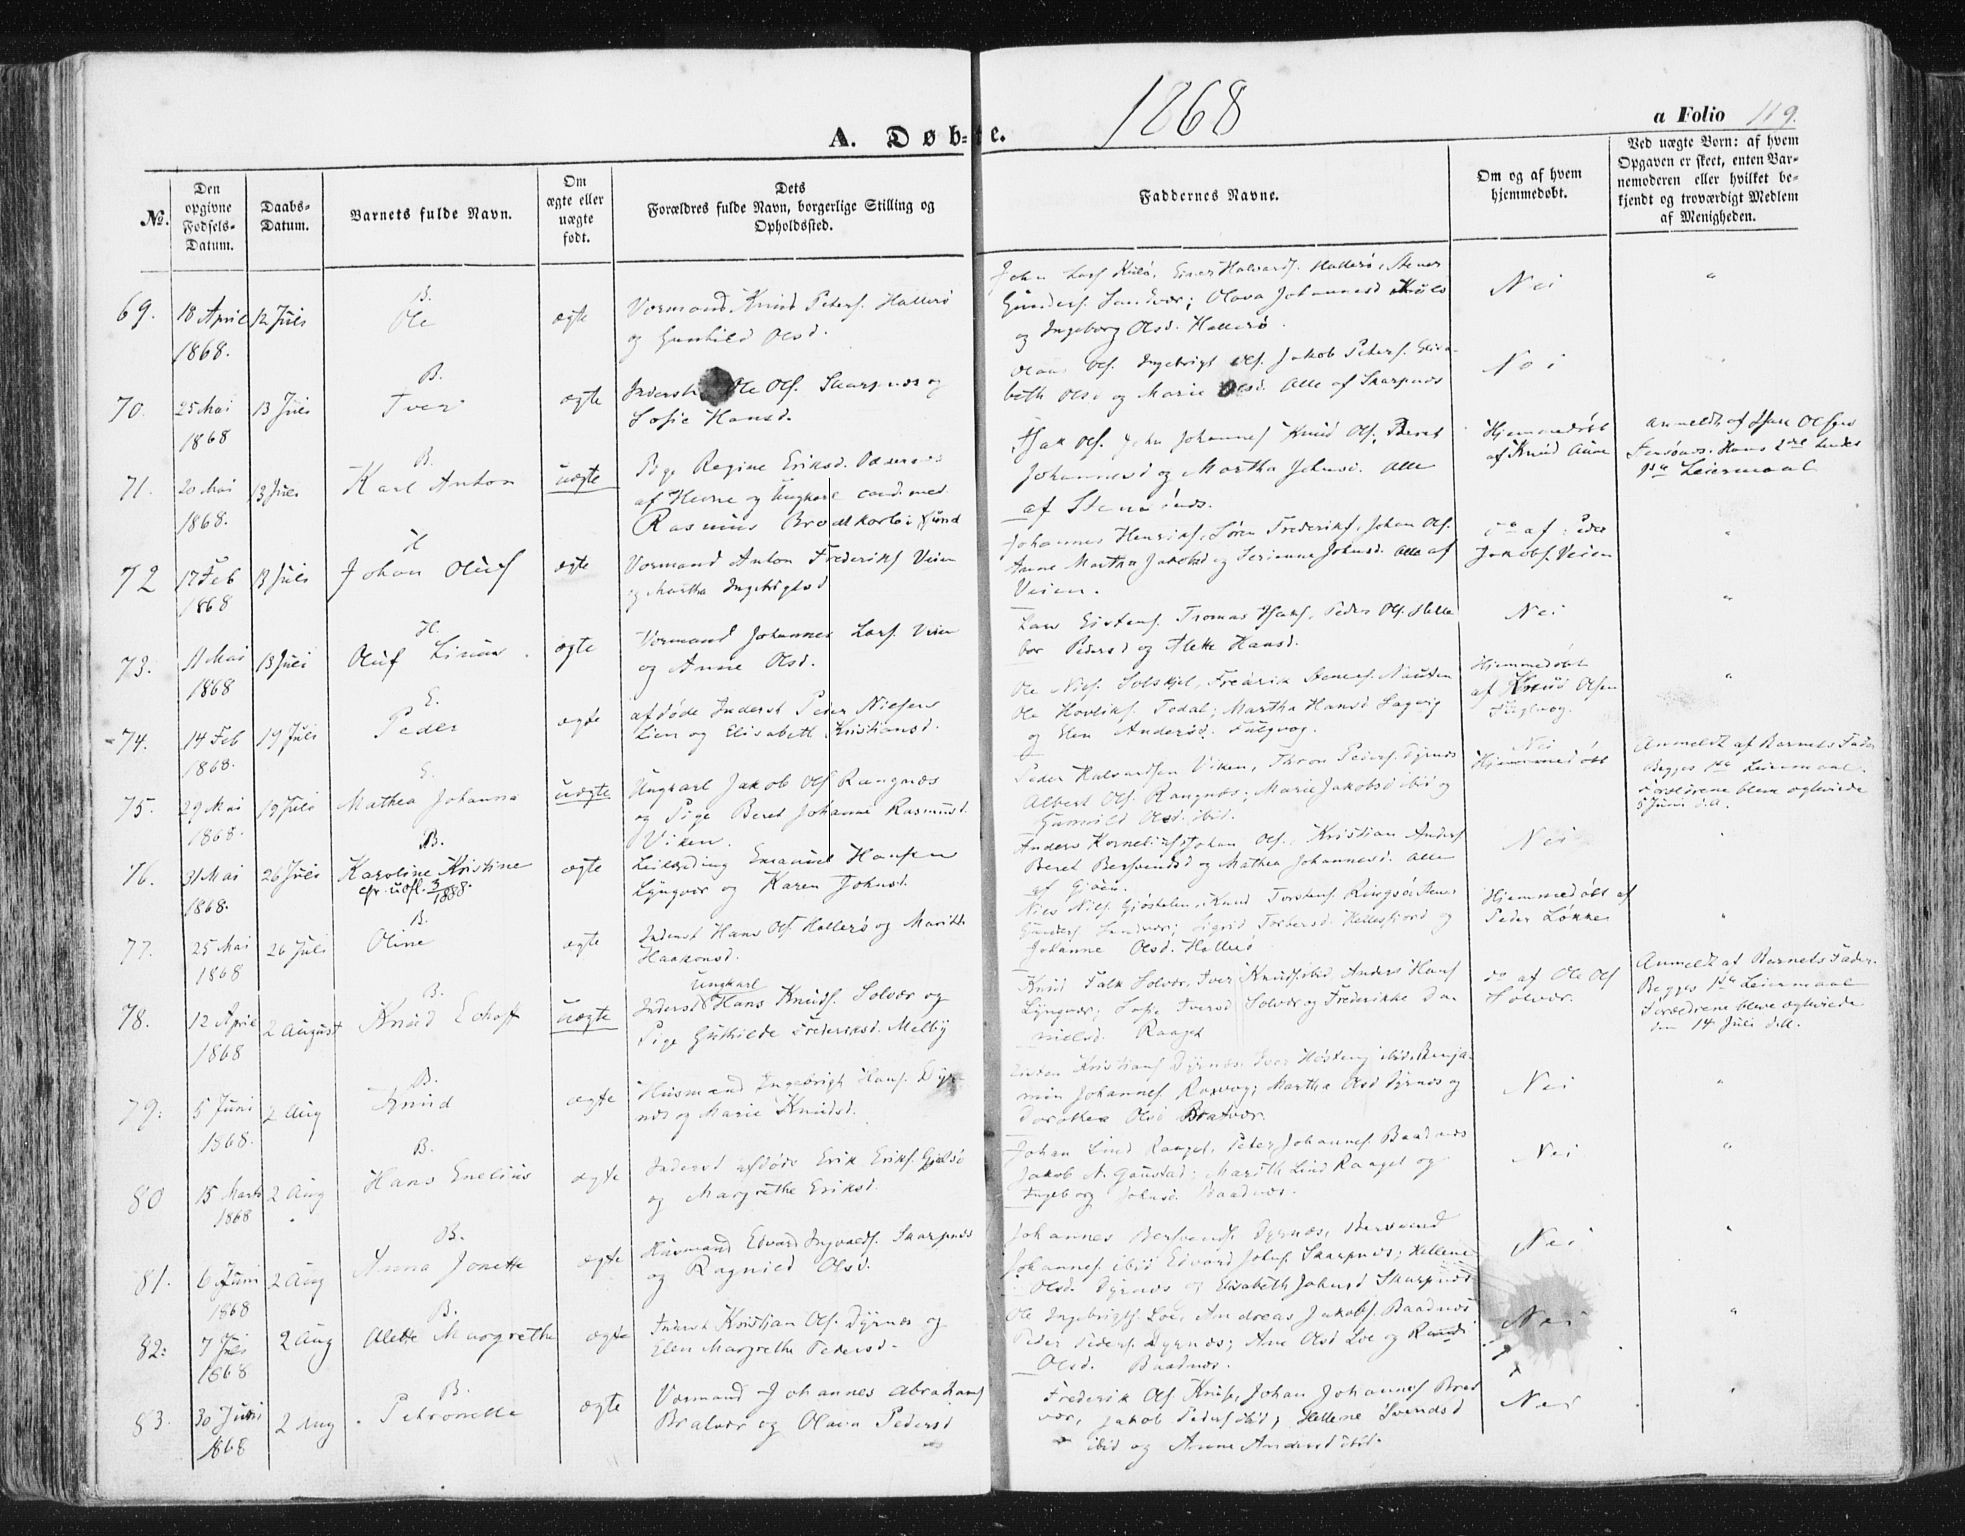 1868
a Folio 119.
A. Døbte.
No.
Den opgivne Fødsels-Datum.
Daabs-Datum.
Barnets fulde Navn.
Om ægte eller uægte født.
Dets Forældres fulde Navn, borgerlige Stilling og Opholdssted.
Faddernes Navne.
Om og af hvem hjemmedøbt.
Ved uægte Børn: af hvem Opgaven er skeet, enten Barnemoderen eller hvilket bekjendt og troværdigt Medlem af Menigheden.
69. 18 April 1868. 12 Juli
B.
Ole
ægte
Vormand Knud Peters. Hallerø
og Gunhild Olsd.
John Lars Kulø, Einer Halvards. Hallerø, Stener
Gunders. Sandvær; Olava Johannesd Kulø
og Ingeborg Olsd. Hallerø.
Nei
"
70. 25 Mai 1868 13 Juli
B.
Iver
ægte
Inderst Ole Ols. Skarpnæs og
Sofie Hansd.
Olaus Ols. Ingebrigt Ols. Jakob Peters. Elisa-
beth Olsd og Marie Olsd. Alle af Skarpnæs
Nei
71. 20 Mai 1868. 13 Juli
B.
Karl Anton
uægte
Pige Regine Eriksd.
af Hevne og Ungkarl cand. med
Rasmus Brodtkorb i Sund
Isak Ols. John Johannes Knud Ols. Beret
Johannesd og Martha Johnsd. Alle
af Stensønæs.
Hjemmedøbt
af Knud Aune
Anmeldt af Isak Olsen
Hans 2det hendes
1ste Leiermaal
72 17 Feb 1868 13 Juli
H
Johan Oluf
ægte
Vormand Anton Frederiks Veien
og Martha Ingebrigtsd
Johannes Henriks, Søren Frederiks, Johan Ols.
Anne Martha Jakobsd og Serianna Johnsd. Alle af
Veien.
do af Peder
Jakobs. Veien
"
73. 11 Mai 1868 13 Juli
H.
Oluf Linus
ægte
Vormand Johannes Lars. Veien
og Anne Olsd.
Lars Eistens. Tromas Isaks, Peder Ols. Helle
bor Pedersd og Alette Hansd.
Nei
"
74. 14 Feb 1868. 19 Juli
E.
Peder
ægte
afdøde Inderst Peter Nielsen
Lien og Elisabeth Kristiansd.
Ole Niels. Solskjel, Fredrik Steners. Nausten
Ole Hovliks. Tedal; Martha Hansd Sagvig
og Elen Andersd. Fuglvog.
Hjemmedøbt
af Knud Olsen
Fuglvog.
"
75. 29 Mai 1868. 19 Juli
E.
Mathea Johanna
uægte
Ungkarl Jakob Ols Rangnæs
og Pige Beret Johanne Rasmusd.
Viken.
Peder Halvardsen Viken, Thron Peders. Dyrnæs
Albert Ols. Rangnæs; Marie Jakobsd ibid og
Gunild Olsd. ibid.
Nei
Hjemmedøbt
Anmeldt af Barnets Fader
Begges 1ste Leiermaal.
Forældrene bleve ægteviede
5 Juni d.A.
76. 31 Mai 1868. 26 Juli
B.
Karoline Kristine
cfr. udfl. 3/1888.
ægte
Leilænding Emanuel Hansen
Lyngvær og Karen Johnsd.
Anders Kornelius Johan Ols. Kristian Anders
Beret Bersvendsd og Mathea Johannesd. Alle
af Gjøen.
Nei
77. 25 Mai 1868 26 Juli
B.
Oline
ægte
Inderst Hans Ols Hallerø og Marith
Haakonsd.
Niels Niels. Gjøstølen, Knud Torstens. Ringsø, Stener
Gunders Sandvær; Sigrid Torbersd. Hellesfjord og
Johanne Olsd. Hallerø
Hjemmedøbt af
Peder Løkken
"
78. 12 April 1868 2 August
B.
Knud Echoff
uægte
Ungkarl
Inderst Hans Knuds. Solvær og
Pige Guthilde Frederiksd. Melby
Knud Falk Solvær, Iver Knuds. ibid, Anders Hans
Lyngvær; Sofie Iversd Solvær og Frederikke Da-
nielsd. Raaget
do af Ole Ols
Solvær.
Anmeldt af Barnets Fader.
Begges 1ste Leiermaal
Forældrene bleve ægteviede
den 14 Juli d.A.
79. 5 Juni 1868. 2 Aug
B.
Knud
ægte
Husmand Ingebrigt Hans. Dyr-
næs og Marie Knudsd.
Eisten Kristians Dyrnæs, Iver Høstens ibid, Benja-
min Johannes Roxvog; Martha Olsd Dyrnæs og
Dorothea Olsd Bratvær.
Nei
"
80 15 Marts 1868 2 Aug
B.
Hans Enelius
ægte
Inderst afdøde Erik Eriks. Gjelsø
og Margrethe Eriksd.
Johan Lind Raaget, Peter Johannes. Baadnæs
Jakob N. Gaustad; Marith Lind Raaget og
Ingeborg Johnsd. Baadnæs.
Nei
"
81. 6 Juni 1868 2 Aug
B.
Anna Jonette
ægte
Husmand Edvard Ingvalds. Skarpnæs
og Ragnild Olsd.
Johannes Bersvends Dyrnæs, Bersvend
Johannes. ibid Edvard Johns Skarpnæs; Hellene
Olsd. Dyrnæs og Elisabeth Johnsd Skarpnæs
Nei
"
82. 7 Juli 1868 2 Aug
B.
Alette Margrethe
ægte
Inderst Kristian Ols. Dyrnæs og
Elen Margrethe Pedersd.
Ole Ingebrigts. Loe, Andreas Jakobs. Baadnæs
Peder Peders. Dyrnæs; Ane Olsd Loe og Randi
Olsd. Baadnæs.
Nei
"
83. 30 Juni 1868 2 Aug
B.
Petronelle
ægte
Vormand Johannes Abrahams
Bratvær og Olava Pedersd
Frederik Ols Knip, Johan Johannes Brat
vær, Jakob Peders ibid; Hellene Svendsd
ibid og Anne Andersd ibid.
Nei
"